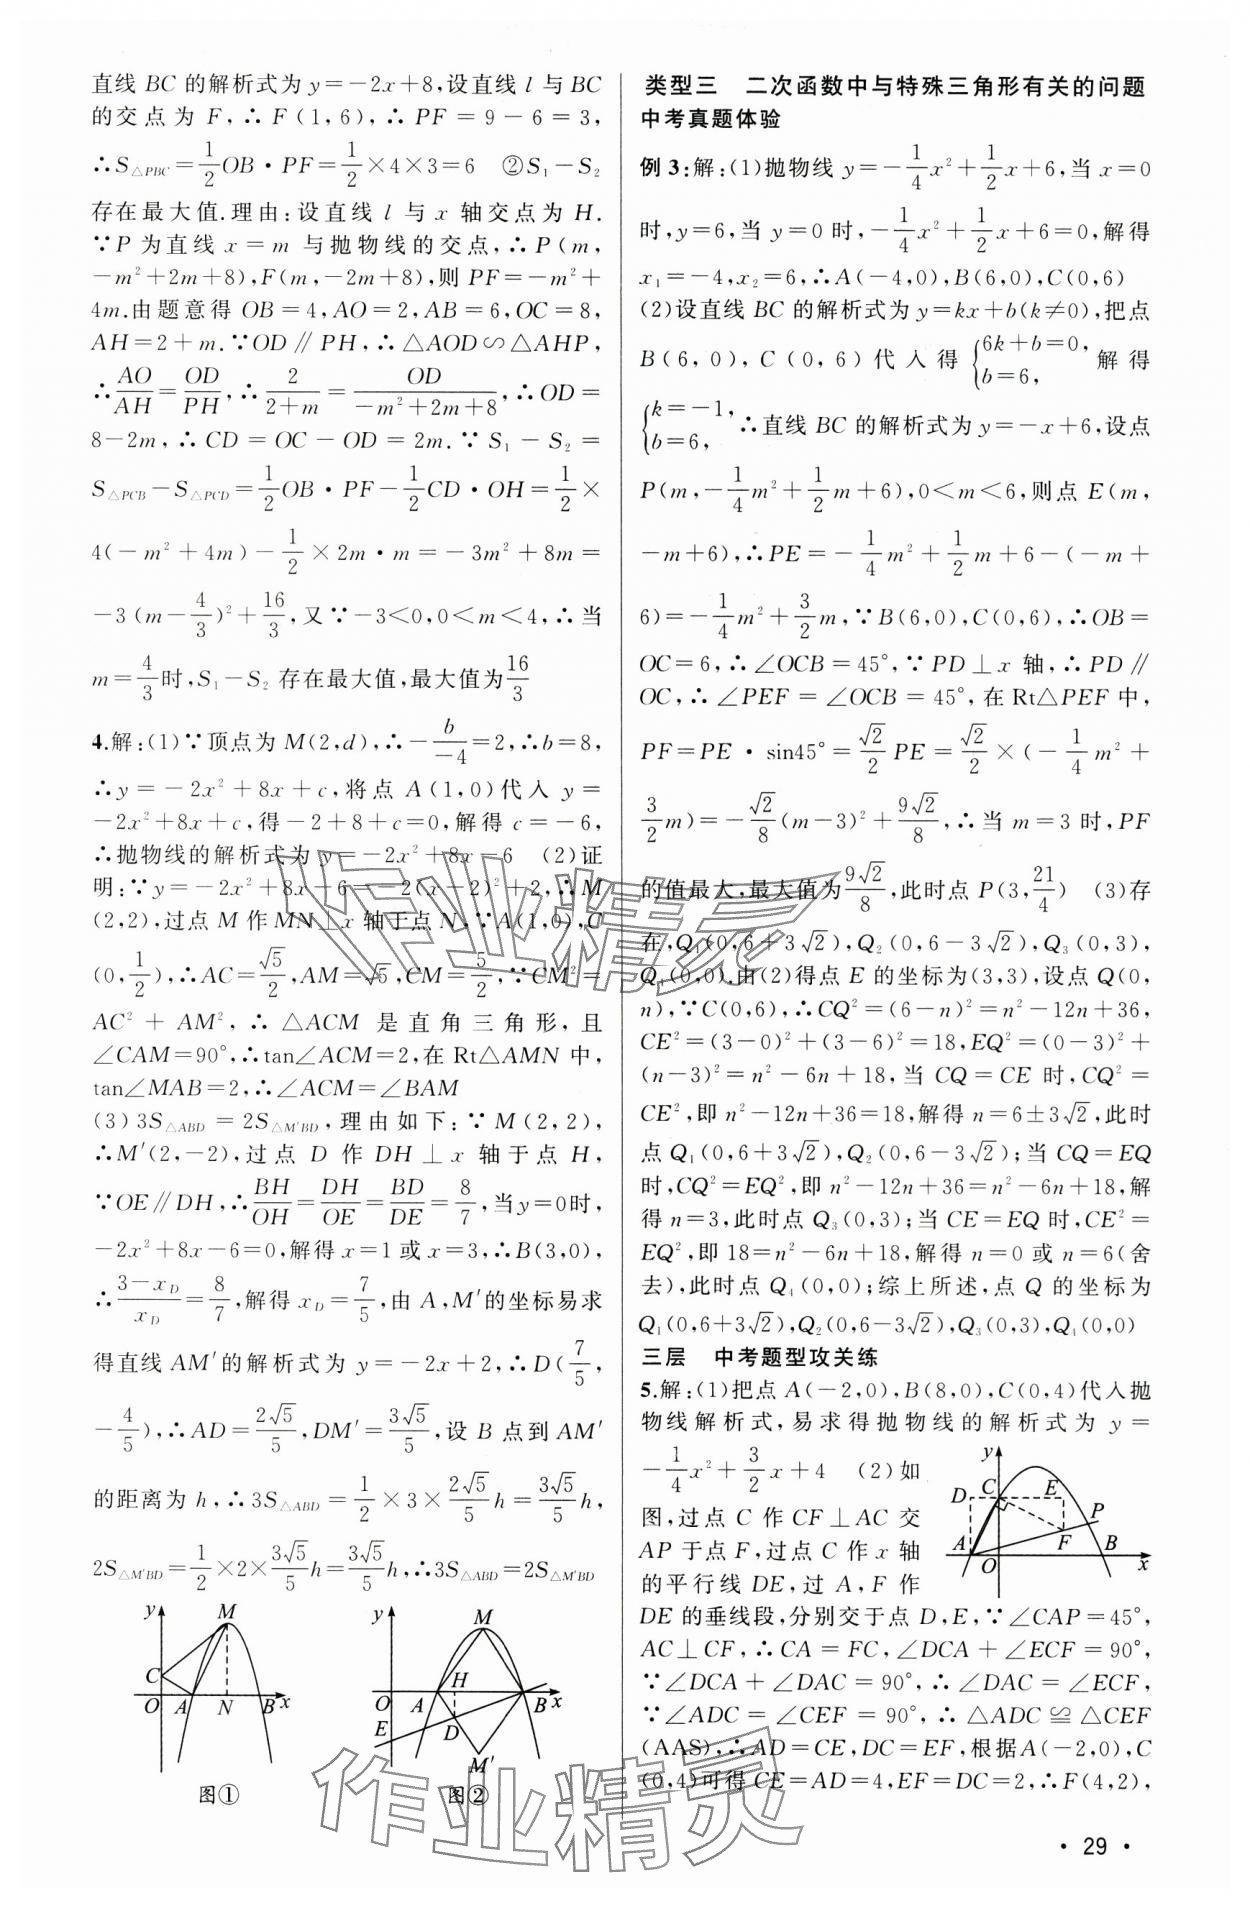 直线 BC 的解析式为 y=-2x+8,设直线 l 与 BC
的交点为 F,∴F(1,6),∴PF=9-6=3,
∴S△PBC=1/2OB·PF=1/2×4×3=6 ②S₁-S₂
存在最大值.理由:设直线 l 与 x 轴交点为 H.
∵P 为直线 x=m 与抛物线的交点,∴P(m,
-m²+2m+8),F(m,-2m+8),则 PF=-m²+
4m.由题意得 OB=4,AO=2,AB=6,OC=8,
AH=2+m.∵OD∥PH,∴△AOD∽△AHP,
∴AO/AH=OD/PH,∴2/(2+m)=OD/(-m²+2m+8),∴OD=
8-2m,∴CD=OC-OD=2m.∵S₁-S₂=
S△PCB-S△PCD=1/2OB·PF-1/2CD·OH=1/2×
4(-m²+4m)-1/2×2m·m=-3m²+8m=
-3(m-4/3)²+16/3,又∵-3<0,0<m<4,∴当
m=4/3时,S₁-S₂存在最大值,最大值为16/3
4.解:(1)∵顶点为 M(2,d),∴-b/-4=2,∴b=8,
∴y=-2x²+8x+c,将点 A(1,0)代入 y=
-2x²+8x+c,得-2+8+c=0,解得 c=-6,
∴抛物线的解析式为 y=-2x²+8x-6 (2)证
明:∵y=-2x²+8x-6=-2(x-2)²+2,∴M
(2,2),过点 M 作 MN⊥x 轴于点 N,∵A(1,0),C
(0,1/2),∴AC=√5/2,AM=√5,CM=5/2,∵CM²=
AC²+AM²,∴△ACM 是直角三角形,且
∠CAM=90°,∴tan∠ACM=2,在 Rt△AMN 中,
tan∠MAB=2,∴∠ACM=∠BAM
(3)3S△ABD=2S△M′BD,理由如下:∵M(2,2),
∴M′(2,-2),过点 D 作 DH⊥x 轴于点 H,
∵OE∥DH,∴BH/OH=DH/OE=BD/DE=8/7,当y=0时,
-2x²+8x-6=0,解得 x=1或x=3,∴B(3,0),
∴(3-x_D)/x_D=8/7,解得 x_D=7/5,由 A,M′的坐标易求
得直线 AM′的解析式为 y=-2x+2,∴D(7/5,
-4/5),∴AD=2√5/5,DM′=3√5/5,设 B 点到 AM′
的距离为 h,∴3S△ABD=1/2×3×2√5/5h=3√5/5h,
2S△M′BD=1/2×2×3√5/5h=3√5/5h,∴3S△ABD=2S△M′BD
y M C O A N B x
图①
y M H O A B x E D M′
图②
类型三 二次函数中与特殊三角形有关的问题
中考真题体验
例 3:解:(1)抛物线 y=-1/4x²+1/2x+6,当 x=0
时,y=6,当 y=0 时,-1/4x²+1/2x+6=0,解得
x₁=-4,x₂=6,∴A(-4,0),B(6,0),C(0,6)
(2)设直线 BC 的解析式为 y=kx+b(k≠0),把点
B(6,0),C(0,6)代入得{6k+b=0, b=6, 解得
{k=-1, b=6, ∴直线 BC 的解析式为 y=-x+6,设点
P(m,-1/4m²+1/2m+6),0<m<6,则点 E(m,
-m+6),∴PE=-1/4m²+1/2m+6-(-m+
6)=-1/4m²+3/2m,∵B(6,0),C(0,6),∴OB=
OC=6,∴∠OCB=45°,∵PD⊥x 轴,∴PD∥
OC,∴∠PEF=∠OCB=45°,在 Rt△PEF 中,
PF=PE·sin45°=√2/2PE=√2/2×(-1/4m²+
3/2m)=-√2/8(m-3)²+9√2/8,∴当 m=3 时,PF
的值最大,最大值为9√2/8,此时点 P(3,21/4) (3)存
在,Q₁(0,6+3√2),Q₂(0,6-3√2),Q₃(0,3),
Q₄(0,0).由(2)得点 E 的坐标为(3,3),设点 Q(0,
n),∵C(0,6),∴CQ²=(6-n)²=n²-12n+36,
CE²=(3-0)²+(3-6)²=18,EQ²=(0-3)²+
(n-3)²=n²-6n+18,当 CQ=CE 时,CQ²=
CE²,即 n²-12n+36=18,解得 n=6±3√2,此时
点 Q₁(0,6+3√2),Q₂(0,6-3√2);当 CQ=EQ
时,CQ²=EQ²,即 n²-12n+36=n²-6n+18,解
得 n=3,此时点 Q₃(0,3);当 CE=EQ 时,CE²=
EQ²,即 18=n²-6n+18,解得 n=0 或 n=6(舍
去),此时点 Q₄(0,0);综上所述,点 Q 的坐标为
Q₁(0,6+3√2),Q₂(0,6-3√2),Q₃(0,3),Q₄(0,0)
三层 中考题型攻关练
5.解:(1)把点 A(-2,0),B(8,0),C(0,4)代入抛
物线解析式,易求得抛物线的解析式为 y=
-1/4x²+3/2x+4 (2)如
图,过点 C 作 CF⊥AC 交
AP 于点 F,过点 C 作 x 轴
的平行线 DE,过 A,F 作
y D C E P F A O B x
DE 的垂线段,分别交于点 D,E,∵∠CAP=45°,
AC⊥CF,∴CA=FC,∠DCA+∠ECF=90°,
∵∠DCA+∠DAC=90°,∴∠DAC=∠ECF,
∵∠ADC=∠CEF=90°,∴△ADC≌△CEF
(AAS),∴AD=CE,DC=EF,根据A(-2,0),C
(0,4)可得 CE=AD=4,EF=DC=2,∴F(4,2),
·29·
作业精灵
作业精灵